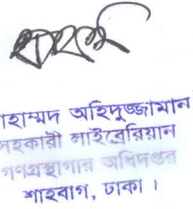 াহাম্মদ অহিদুজ্জামান
সহকারী লাইব্রেরিয়ান
গণগ্রন্থাগার অধিদপ্তর
শাহবাগ, ঢাকা ।